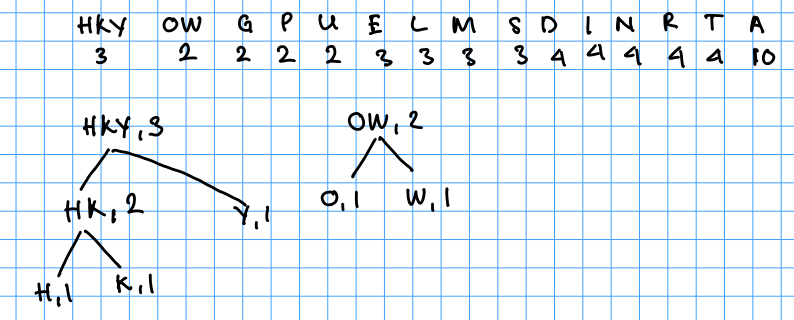 HKY OW G P U E L M S D I N R T A
3 2 2 2 2 3 3 3 3 4 4 4 4 4 10
HKY, 3 OW, 2
HK, 2 Y, 1 O, 1 W, 1
H, 1 K, 1